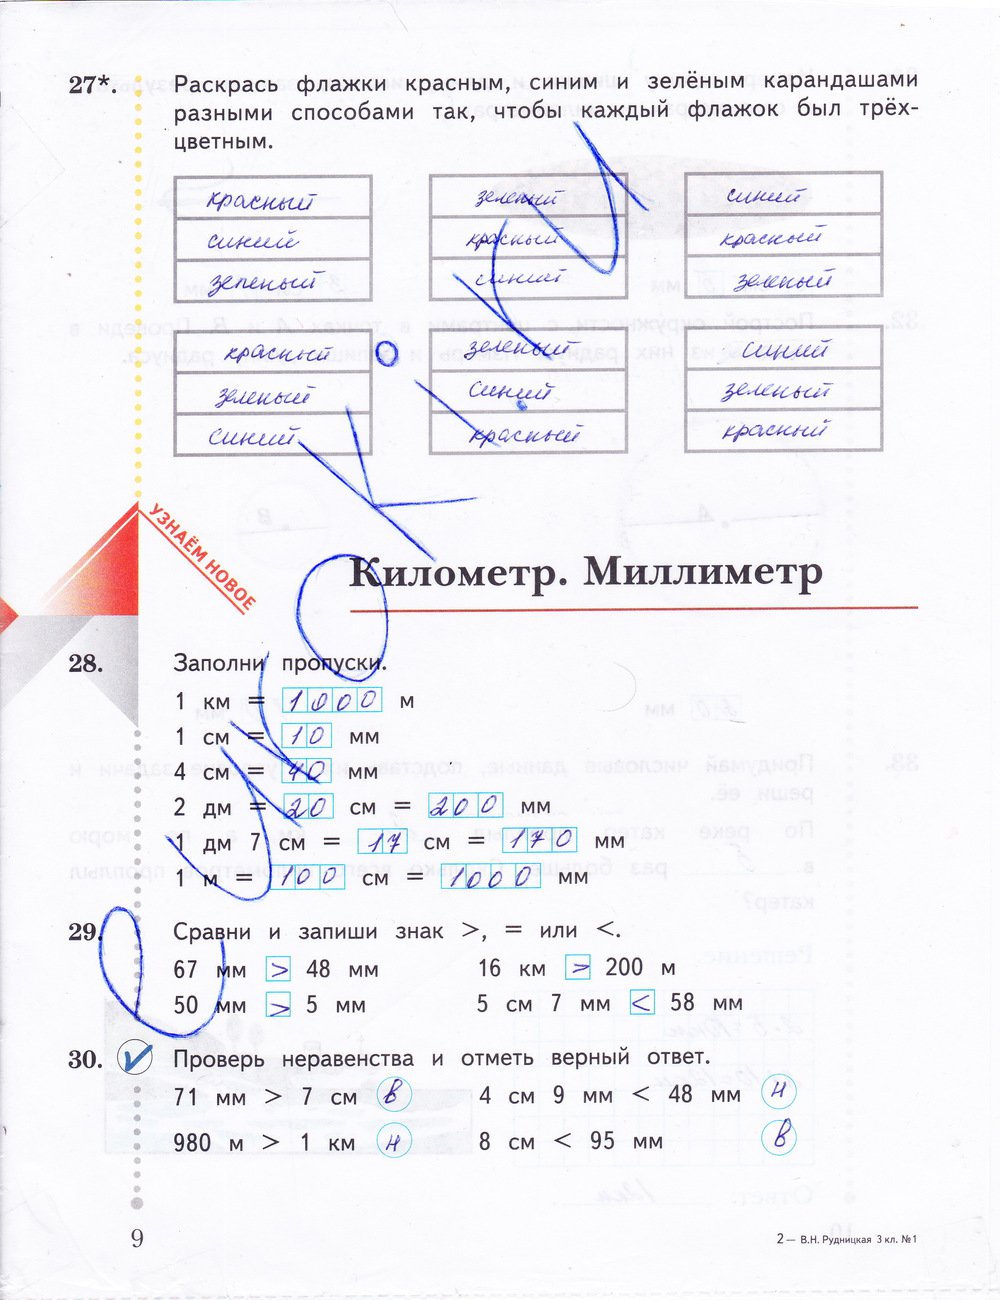 27*. Раскрась флажки красным, синим и зелёным карандашами
разными способами так, чтобы каждый флажок был трёх-
цветным.
красный зеленый синий
синий красный красный
зеленый синий зеленый
красный зеленый синий
зеленый синий зеленый
синий красный красный
УЗНАЁМ НОВОЕ
Километр. Миллиметр
28. Заполни пропуски.
1 км = 1000 м
1 см = 10 мм
4 см = 40 мм
2 дм = 20 см = 200 мм
1 дм 7 см = 17 см = 170 мм
1 м = 100 см = 1000 мм
29. Сравни и запиши знак >, = или <.
67 мм > 48 мм 16 км > 200 м
50 мм > 5 мм 5 см 7 мм < 58 мм
30. Проверь неравенства и отметь верный ответ.
71 мм > 7 см в 4 см 9 мм < 48 мм н
980 м > 1 км н 8 см < 95 мм в
9 2— В.Н. Рудницкая 3 кл. №1